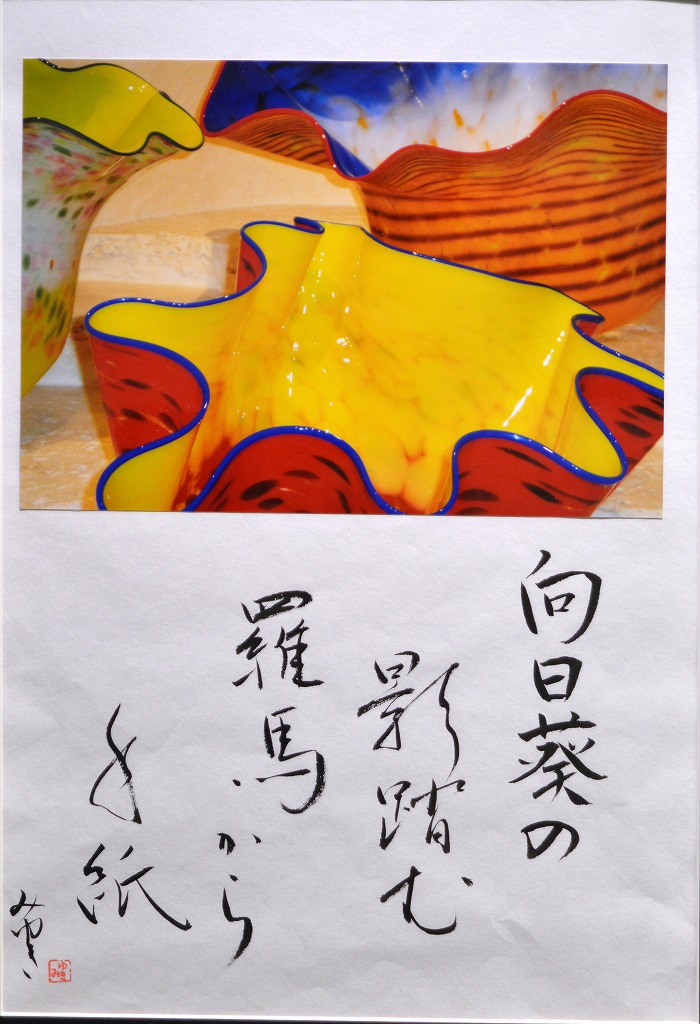 向日葵の
影踏む
羅馬から
手紙